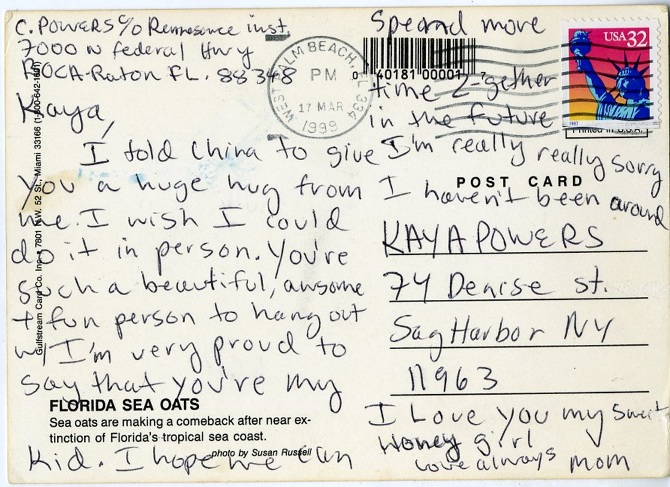 C. POWERS c/o Rennesance inst.
7000 N federal Hwy
BOCA-Raton FL. 88348
Kaya,
I told China to give
you a huge hug from
me. I wish I could
do it in person. You're
such a beautiful, awsome
+ fun person to hang out
w/ I'm very proud to
say that you're my
FLORIDA SEA OATS
Sea oats are making a comeback after near ex-
tinction of Florida's tropical sea coast.
photo by Susan Russell
Kid. I hope we can
Speand more
time 2-gether
in the future
I'm really really sorry
I haven't been around
WEST PALM BEACH, FL 334
PM
17 MAR
1999
0 40181 00001 7
USA 32
1997
Printed in U.S.A.
POST CARD
KAYA POWERS
74 Denise st.
Sag Harbor NY
11963
I Love you my sweet
Honey girl
Love always mom
Gulfstream Card Co. Inc. • 7801 N.W. 52 St., Miami 33166 (1-800-642-